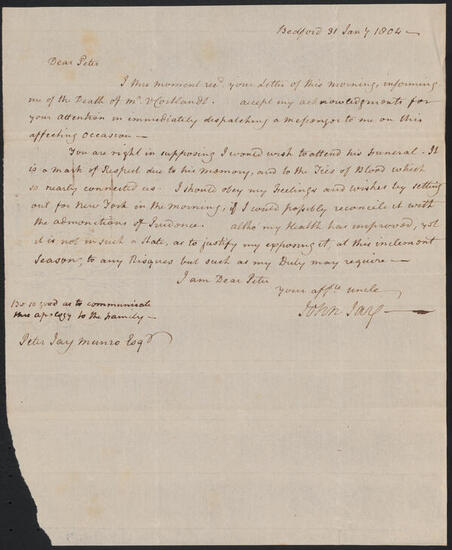 Bedford 31 Jany 1804 —
Dear Peter
I this moment recd your Letter of this morning, informing
me of the Death of Mr. VCortlandt. accept my acknowledgments for
your attention in immediately dispatching a messenger to me on this
affecting occasion —
You are right in supposing I would wish to attend his Funeral - It
is a mark of Respect due to his memory, and to the Ties of Blood which
so nearly connected us. I should obey my Feelings and wishes by setting
out for New York in the morning, if I could possibly reconcile it with
the admonitions of Prudence. altho my Health has improved, yet
it is not in such a State, as to justify my exposing it, at this inclement
Season, to any Risques but such as my Duty may require —
I am Dear Peter
your affte uncle
John Jay —
Be so good as to communicate
this apology to the family —
Peter Jay Munro Esqr